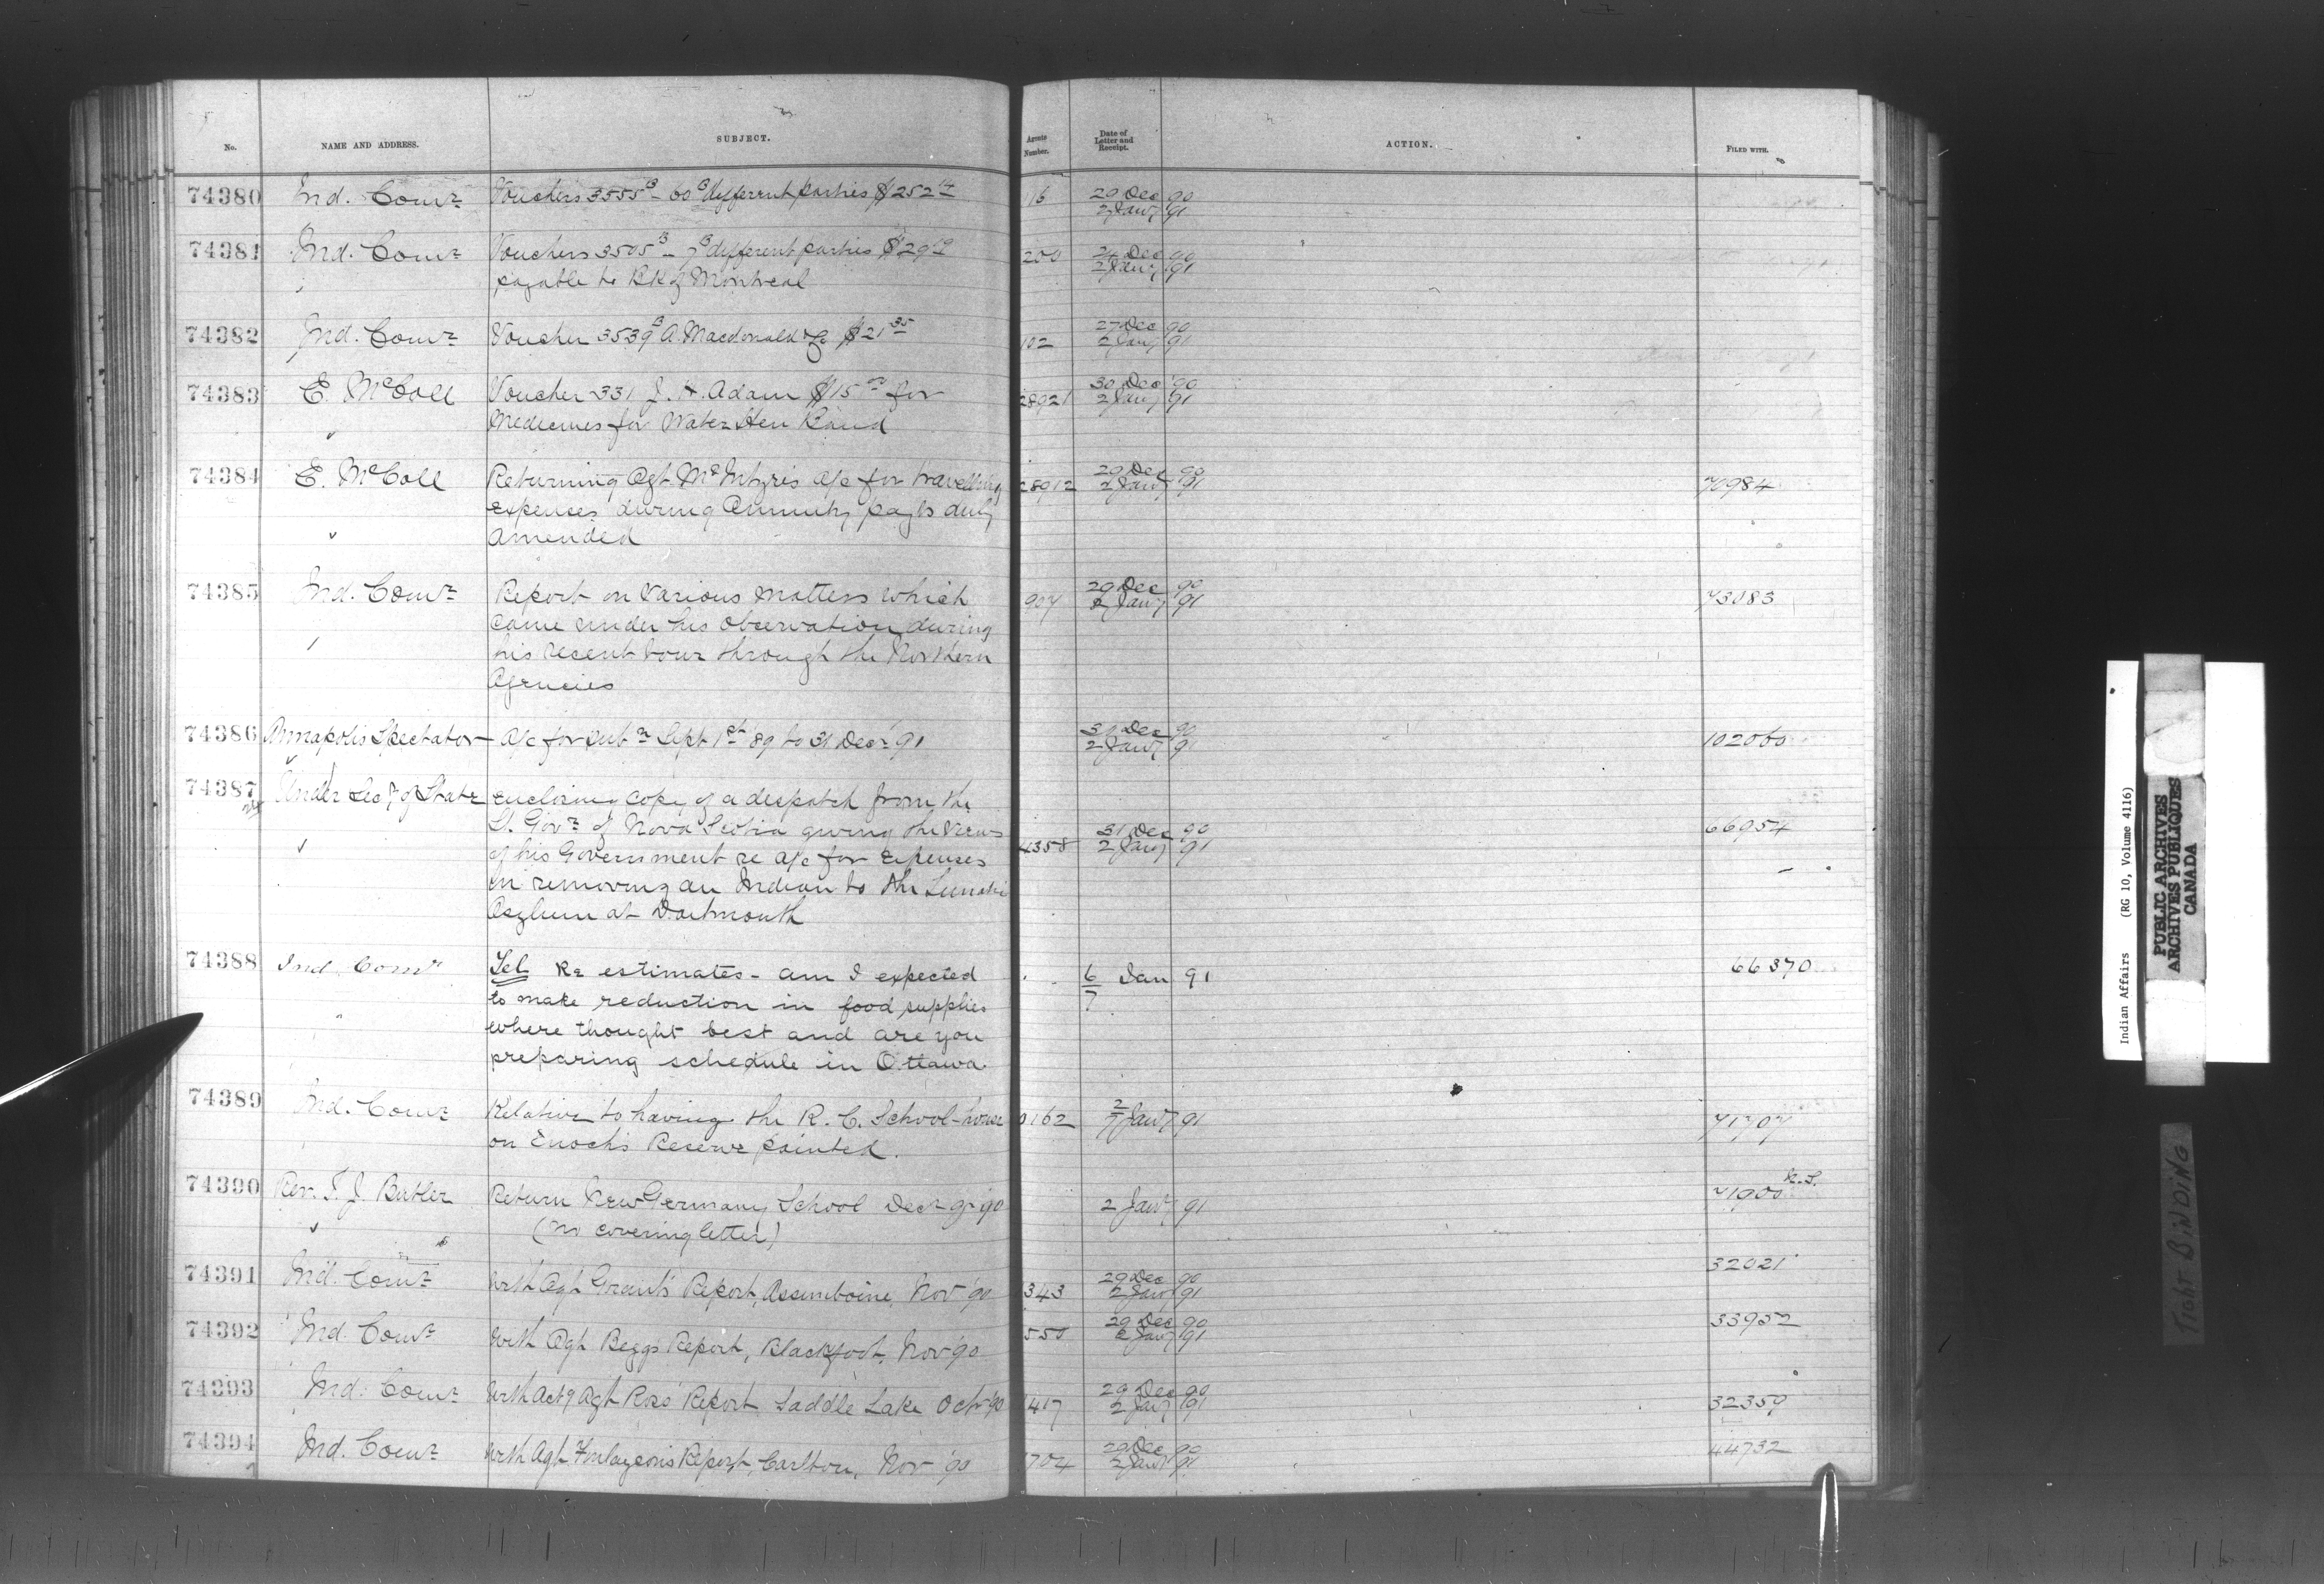 No. NAME AND ADDRESS. SUBJECT. Agents Number. Date of Letter and Receipt. ACTION. FILED WITH.
74380 Ind. Comr Vouchers 3555B - 60B different parties $252 14 116 29 Dec 90
2 Jany 91
74381 Ind. Comr Vouchers 3505B - 7B different parties $29 200 24 Dec 90
payable to BK of Montreal 2 Jany 91
74382 Ind. Comr Voucher 3539B A. Macdonald & Co $21 35 102 27 Dec 90
2 Jany 91
74383 E. McColl Voucher 331 J. H. Adam $15 for 28921 30 Dec 90
Medicines for Water Hen Band 2 Jany 91
74384 E. McColl Returning Agt McIntyre's a/c for travelling 28912 29 Dec 90 70984
expenses during Annuity payts duly 2 Jany 91
amended
74385 Ind. Comr Report on various matters which 907 29 Dec 90 73083
came under his observation during 2 Jany 91
his recent tour through the Northern
Agencies
74386 Annapolis Spectator a/c for subn Sept 1st 89 to 31 Decr 91 31 Dec 90 102060
2 Jany 91
74387 Under Secy of State enclosing copy of a despatch from the
Lt. Govr of Nova Scotia giving the views 31 Dec 90 66954
of his Government re a/c for expenses 4358 2 Jany 91
in removing an Indian to the Lunatic
Asylum at Dartmouth
74388 Ind. Comr Tel Re estimates - am I expected 6/7 Jan 91 66370
to make reduction in food supplies
where thought best and are you
preparing schedule in Ottawa.
74389 Ind. Comr Relative to having the R. C. School-house 0162 2/7 Jany 91 71707
on Enoch's Reserve painted.
74390 Rev. T. J. Butler Return New Germany School Decr qr 90 2 Jany 91 71900
(no covering letter)
74391 Ind. Comr With Agt Grant's Report, Assiniboine, Nov 90 343 29 Dec 90 32021
2 Jany 91
74392 Ind. Comr With Agt Beggs Report, Blackfoot, Nov 90 550 29 Dec 90 33952
2 Jany 91
74393 Ind. Comr With Actg Agt Ross' Report Saddle Lake Oct 90 417 29 Dec 90 32359
2 Jany 91
74394 Ind. Comr With Agt Finlayson's Report, Carlton, Nov 90 704 29 Dec 90 44732
2 Jany 91
Indian Affairs (RG 10, Volume 4116)
PUBLIC ARCHIVES
ARCHIVES PUBLIQUES
CANADA
TIGHT BINDING